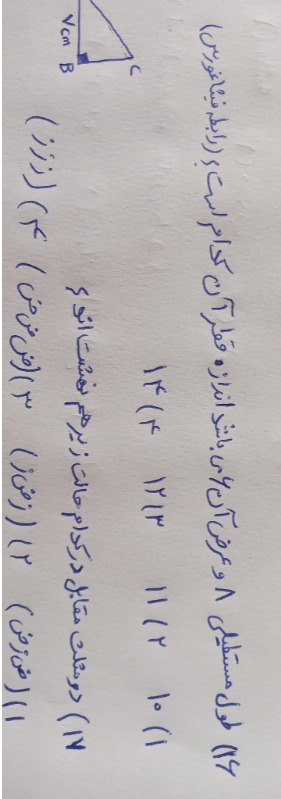 ۱۶) طول مستطیلی ۸ و عرض آن ۶ می باشد اندازه قطر آن کدام است؟ (رابطه فیثاغورس)
۱) ۱۰ ۲) ۱۱ ۳) ۱۲ ۴) ۱۴
۱۷) دو مثلث مقابل در کدام حالت زیر هم نهشت اند؟
۱) (ض ز ض) ۲) (ز ض ز) ۳) (ض ض ض) ۴) (ز ز ز)
C
B
۷cm